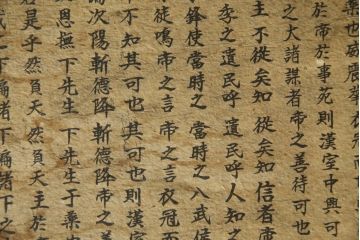 於帝於事苑則漢室中興可
之大諸者帝之善待可也
主不從矣知從矣知信者
季之遺民呼遺民呼人知之
鋒使當時之當時之八武侯
徒鳴帝之言帝之言衣冠而
不知其可也其可也則漢室
次陽斬德降斬德降帝之善
恩撫下先生下先生于桑
是乎然負天然負天主於